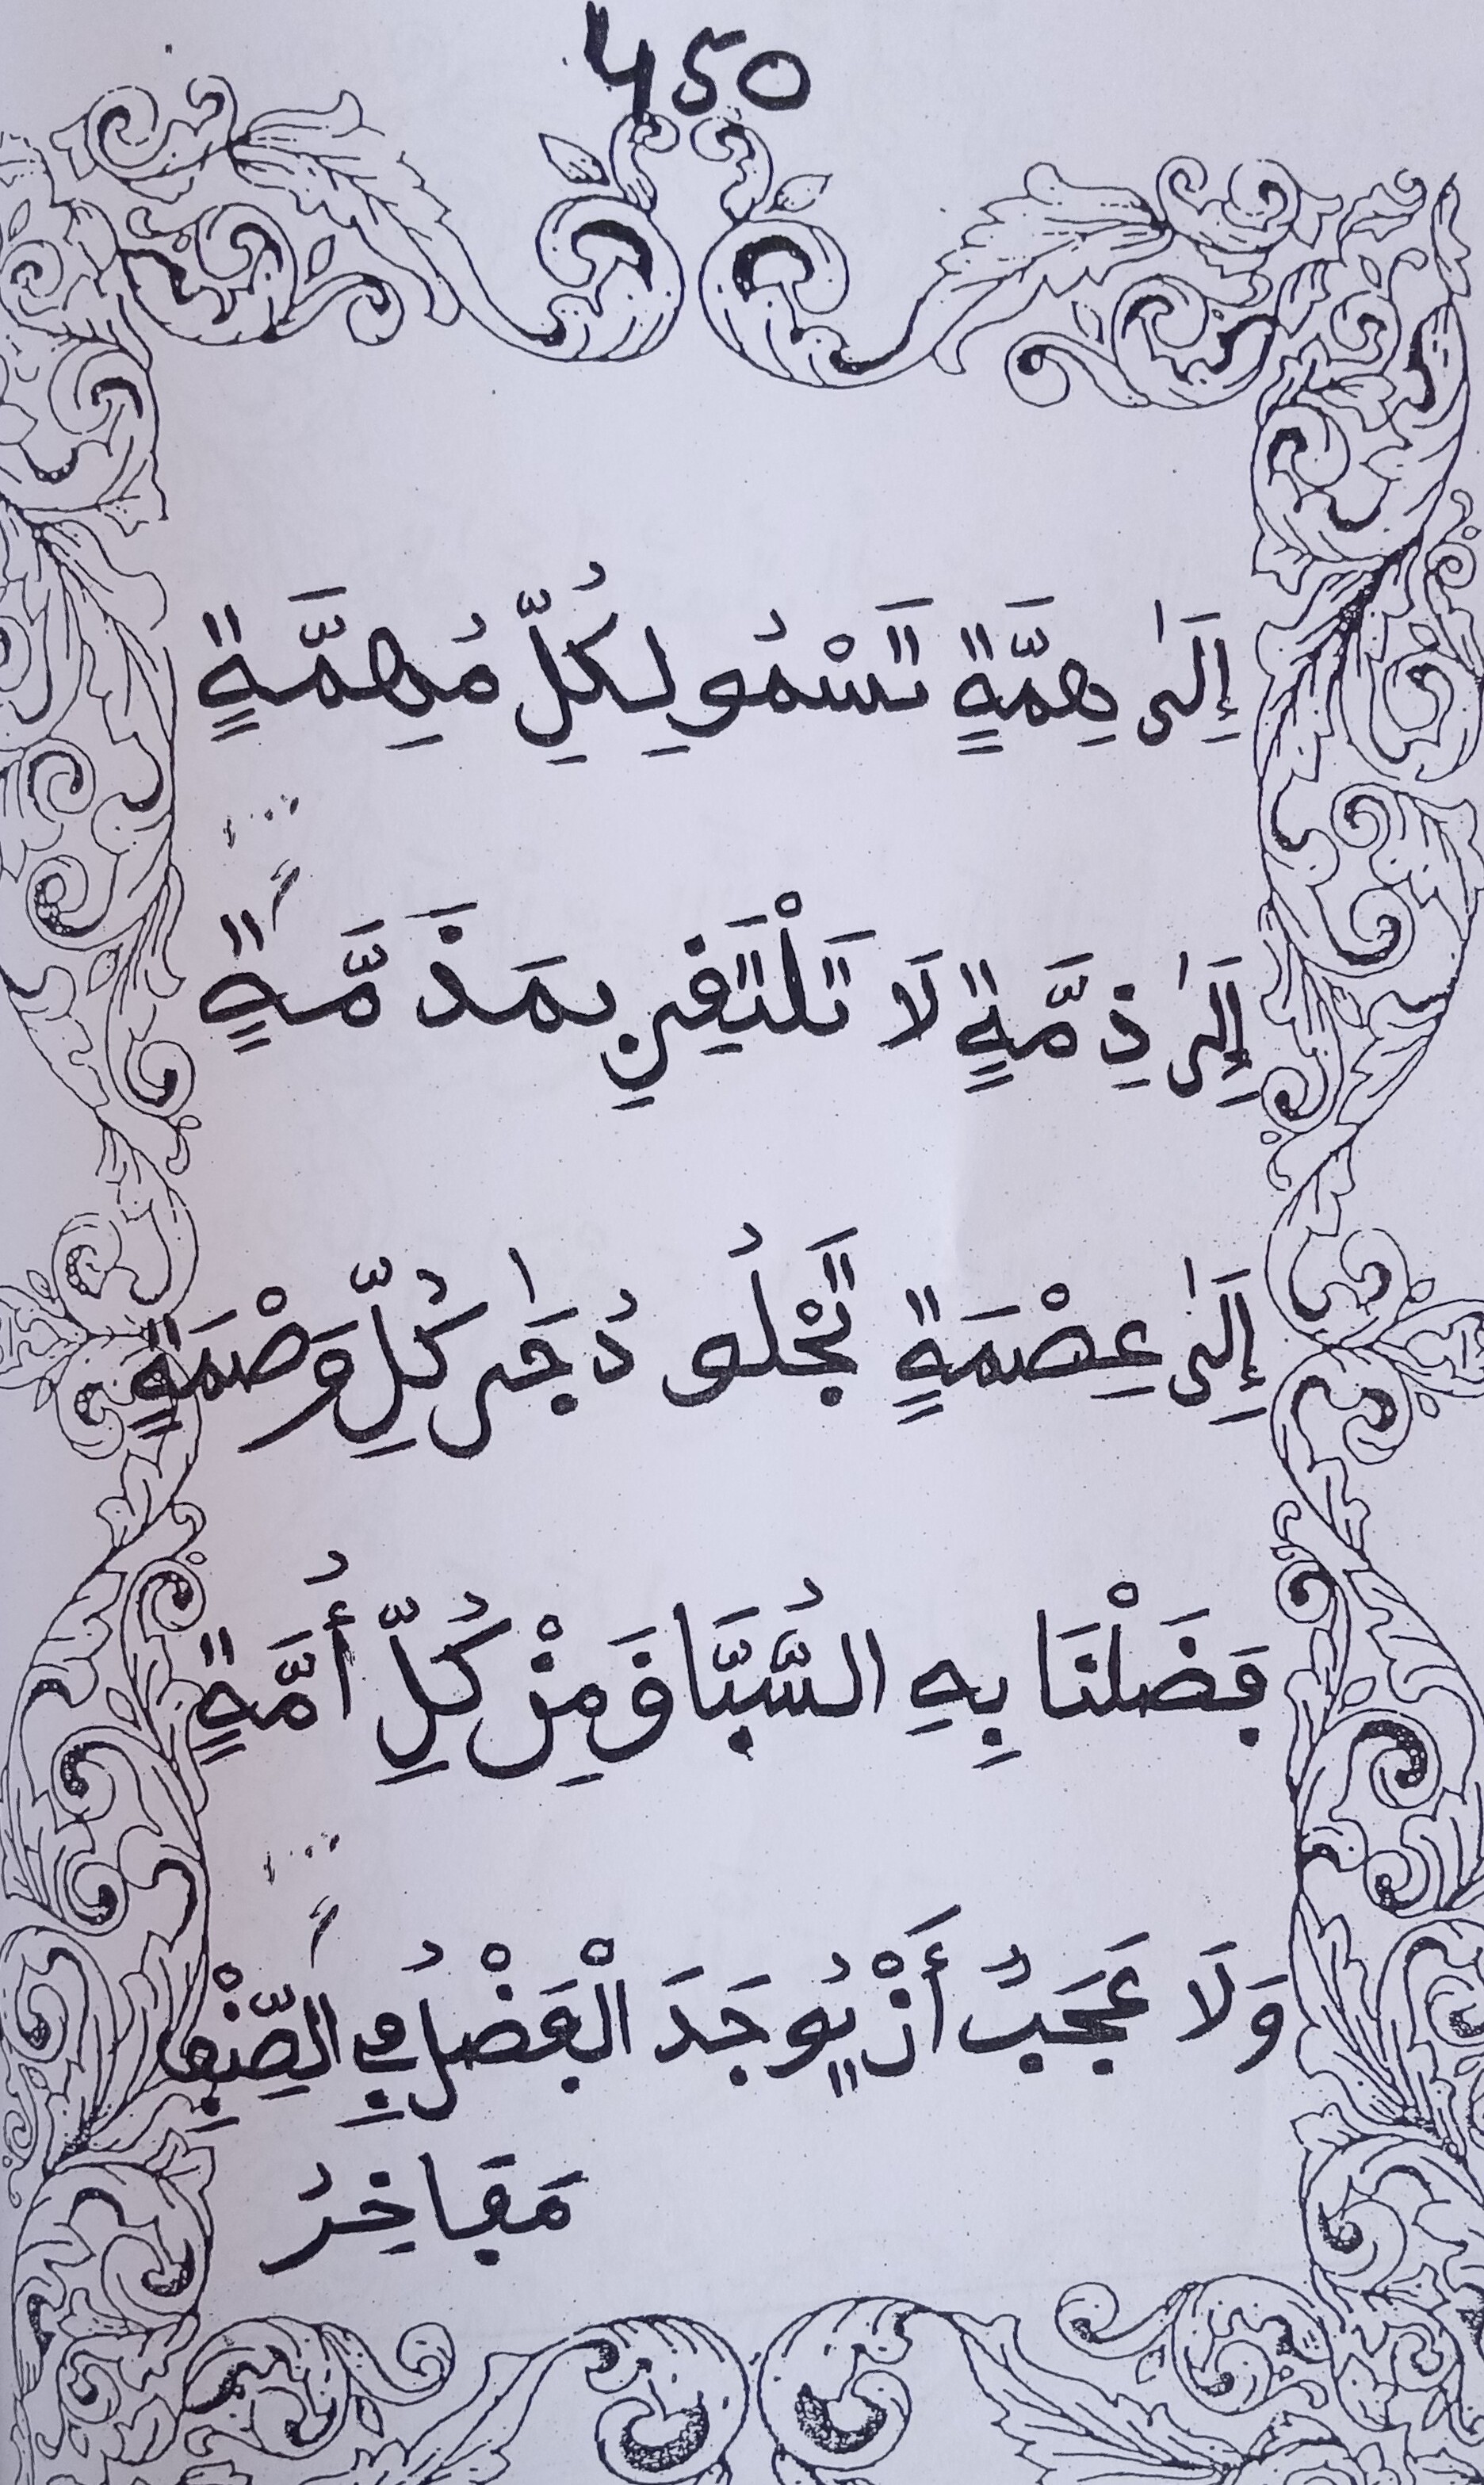 450
إِلَىٰ هِمَّةٍ تَسْمُو لِكُلِّ مُهِمَّةٍ
إِلَىٰ ذِمَّةٍ لَا تَلْتَقِي بِمَذَمَّةٍ
إِلَىٰ عِصْمَةٍ تَجْلُو دُجَىٰ كُلِّ وَصْمَةٍ
فَضَلْنَا بِهِ السُّبَّاقَ مِنْ كُلِّ أُمَّةٍ
وَلَا عَجَبٌ أَنْ يُوجَدَ الْفَضْلُ فِي الصِّنْفِ
مَفَاخِرُ